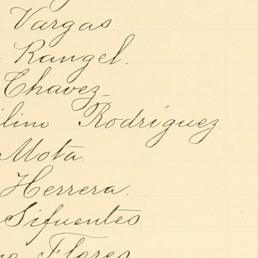 Vargas.
Rangel.
Chavez_
lino Rodríguez
Mota.
Herrera.
Sifuentes
Flores